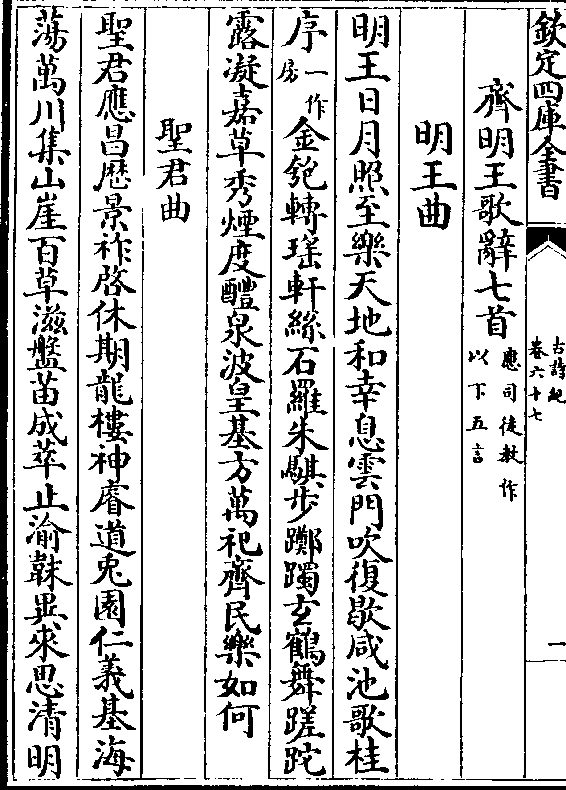 欽定四庫全書
古詩紀
卷六十七
一
齊明王歌辭七首
應司徒教作
以下五言
明王曲
明王日月照至樂天地和幸息雲門吹復歇咸池歌桂
序一作房金匏轉瑤軒絲石羅朱騏步躑躅玄鶴舞蹉跎
露凝嘉草秀煙度醴泉波皇基方萬祀齊民樂如何
聖君曲
聖君應昌厯景祚啓休期龍樓神睿道兎園仁義基海
蕩萬川集山崖百草滋盤苗成萃止渝韎異來思清明